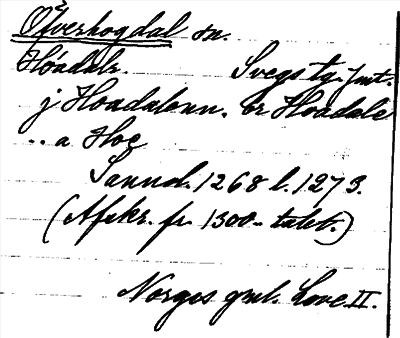 Öfverhogdal sn.
Hóadalr. Svegs tg. Jmt.
j Hoadalenn. or Hoadale
.. a Hoe
Sannd. 1268 l. 1273.
(Afskr. fr. 1300-talet.)
Norges gml. Love II.